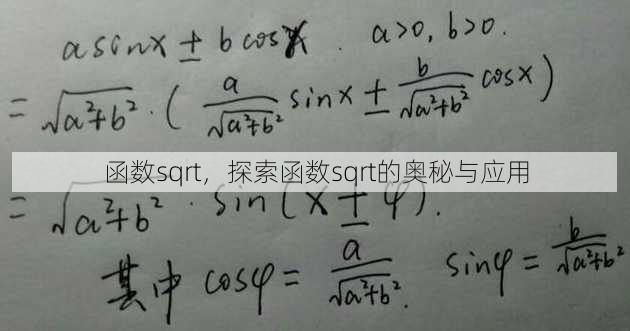 a sinx ± b cosx . a>0, b>0.
= √(a²+b²) · ( a/√(a²+b²) sinx ± b/√(a²+b²) cosx )
函数sqrt，探索函数sqrt的奥秘与应用
= √(a²+b²) · sin(x ± φ).
其中 cosφ = a/√(a²+b²). sinφ = b/√(a²+b²)